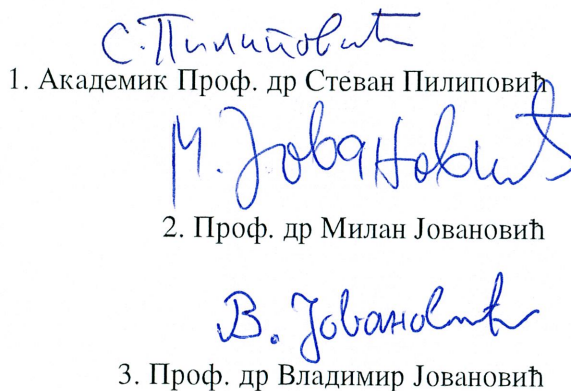 С. Пилиповић
1. Академик Проф. др Стеван Пилиповић
М. Јовановић
2. Проф. др Милан Јовановић
В. Јовановић
3. Проф. др Владимир Јовановић